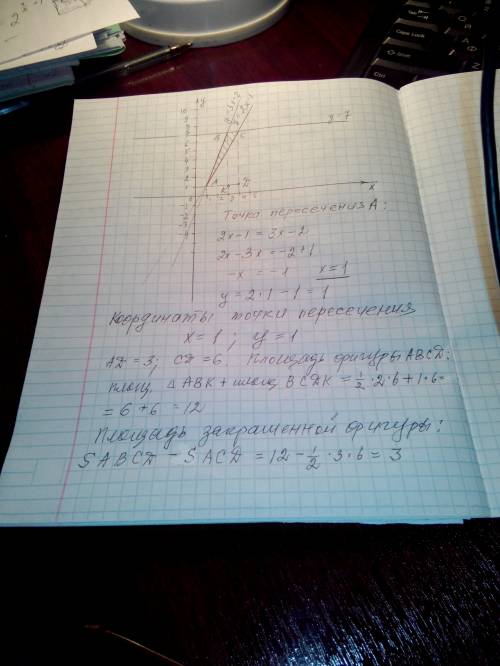 y
y=3x-2
y=2x-1
y=7
B
C
A
K
D
x
Точка пересечения А:
2x-1=3x-2
2x-3x=-2+1
-x=-1 x=1
y=2·1-1=1
Координаты точки пересечения
x=1; y=1
AD=3; CD=6. Площадь фигуры ABCD:
площ. △ ABK + площ. BCDK = 1/2·2·6+1·6=
=6+6=12
Площадь закрашенной фигуры:
SABCD - SACD = 12 - 1/2·3·6 = 3
Caps Lock
Shift
Ctrl